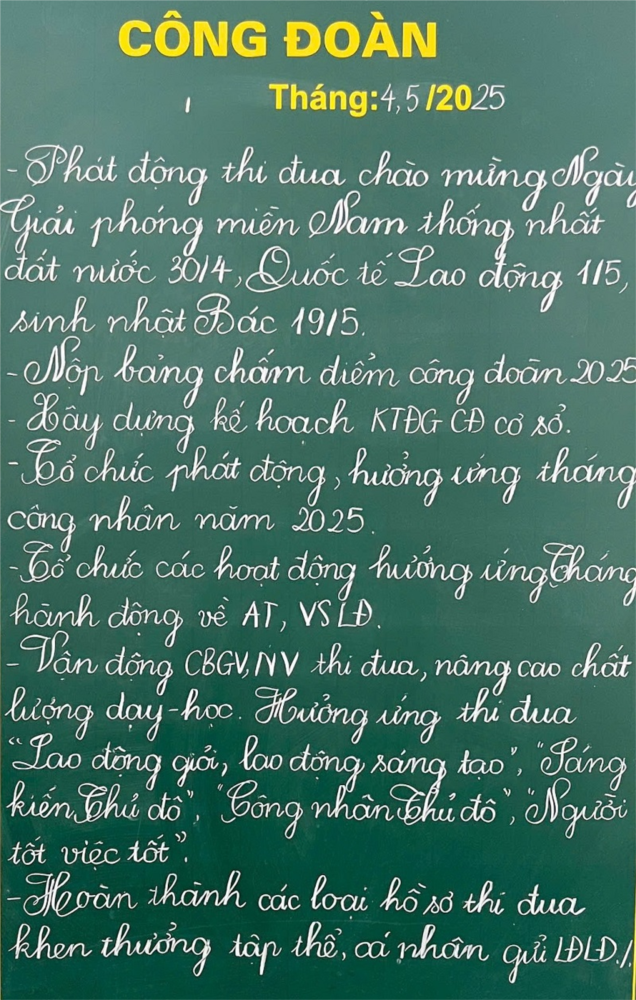 CÔNG ĐOÀN
Tháng: 4,5/2025
- Phát động thi đua chào mừng Ngày
Giải phóng miền Nam thống nhất
đất nước 30/4, Quốc tế Lao động 1/5,
sinh nhật Bác 19/5.
- Nộp bảng chấm điểm công đoàn 2025
- Xây dựng kế hoạch KTĐG CĐ cơ sở.
- Tổ chức phát động, hưởng ứng tháng
công nhân năm 2025.
- Tổ chức các hoạt động hưởng ứng Tháng
hành động về AT, VSLĐ.
- Vận động CBGV, NV thi đua, nâng cao chất
lượng dạy-học. Hưởng ứng thi đua
"Lao động giỏi, lao động sáng tạo", "Sáng
kiến Thủ đô", "Công nhân Thủ đô", "Người
tốt việc tốt".
- Hoàn thành các loại hồ sơ thi đua
khen thưởng tập thể, cá nhân gửi LĐLĐ./.